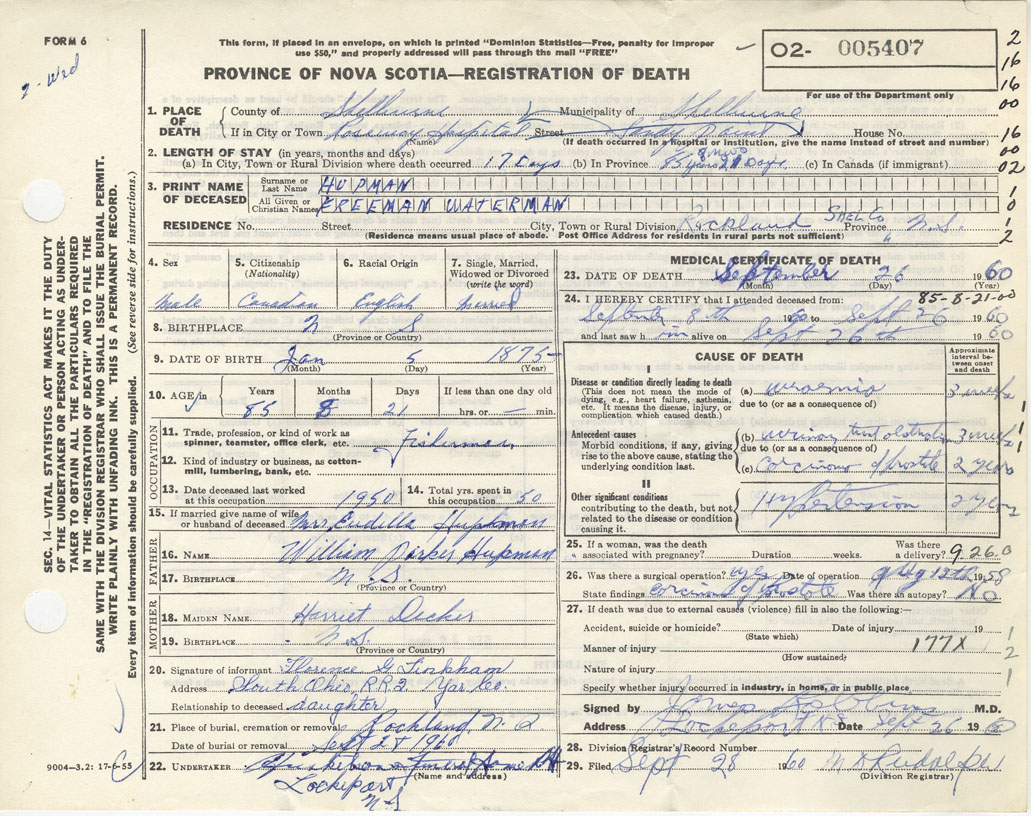 FORM 6
2-Wrd
This form, if placed in an envelope, on which is printed "Dominion Statistics—Free, penalty for improper
use $50," and properly addressed will pass through the mail "FREE"
PROVINCE OF NOVA SCOTIA—REGISTRATION OF DEATH
02- 005407
For use of the Department only
2
16
16
00
16
00
02
1
0
1
2
1. PLACE OF DEATH County of Shelburne Municipality of Shelburne
If in City or Town Roseway Hospital Street Sandy Point House No.
(Name) (If death occurred in a hospital or institution, give the name instead of street and number)
2. LENGTH OF STAY (in years, months and days)
(a) In City, Town or Rural Division where death occurred 17 Days (b) In Province 85 years 8 mos 21 Days (c) In Canada (if immigrant)
3. PRINT NAME OF DECEASED Surname or Last Name HUPMAN
All Given or Christian Names FREEMAN WATERMAN
RESIDENCE No. Street City, Town or Rural Division Rockland SHEL CO Province N.S.
(Residence means usual place of abode. Post Office Address for residents in rural parts not sufficient)
SEC. 14—VITAL STATISTICS ACT MAKES IT THE DUTY
OF THE UNDERTAKER OR PERSON ACTING AS UNDER-
TAKER TO OBTAIN ALL THE PARTICULARS REQUIRED
IN THE "REGISTRATION OF DEATH" AND TO FILE THE
SAME WITH THE DIVISION REGISTRAR WHO SHALL ISSUE THE BURIAL PERMIT.
WRITE PLAINLY WITH UNFADING INK. THIS IS A PERMANENT RECORD.
Every item of information should be carefully supplied. (See reverse side for instructions.)
4. Sex 5. Citizenship (Nationality) 6. Racial Origin 7. Single, Married, Widowed or Divorced (write the word)
Male Canadian English Married
8. BIRTHPLACE N S
(Province or Country)
9. DATE OF BIRTH Jan 5 1875
(Month) (Day) (Year)
10. AGE in Years Months Days If less than one day old
85 8 21 hrs. or — min.
OCCUPATION
11. Trade, profession, or kind of work as spinner, teamster, office clerk, etc. Fisherman
12. Kind of industry or business, as cotton-mill, lumbering, bank, etc.
13. Date deceased last worked at this occupation 1950 14. Total yrs. spent in this occupation 50
15. If married give name of wife or husband of deceased Mrs. Eudilla Hupman
FATHER
16. NAME. William Parker Hupman
17. BIRTHPLACE N.S.
(Province or Country)
MOTHER
18. MAIDEN NAME. Harriet Decker
19. BIRTHPLACE N.S.
(Province or Country)
20. Signature of informant Florence G. Tinkham
Address South Ohio RR2 Yar Co.
Relationship to deceased daughter
21. Place of burial, cremation or removal Rockland N.S
Date of burial or removal Sept 28 1960
22. UNDERTAKER Funeral Home
(Name and address)
Lockeport
N S
9004—3.2: 17-6-55
MEDICAL CERTIFICATE OF DEATH
23. DATE OF DEATH September 26 1960
(Month) (Day) (Year)
85-8-21-00
24. I HEREBY CERTIFY that I attended deceased from:
September 8th 1960 to Sept 26 1960
and last saw him alive on Sept 26th 1960
CAUSE OF DEATH
Approximate interval between onset and death
I
Disease or condition directly leading to death
(This does not mean the mode of dying, e.g., heart failure, asthenia, etc. It means the disease, injury, or complication which caused death.)
(a) uraemia 3 weeks
due to (or as a consequence of)
Antecedent causes
Morbid conditions, if any, giving rise to the above cause, stating the underlying condition last.
(b) urinary tract obstruction 3 weeks
due to (or as a consequence of)
(c) carcinoma of prostate 2 years
II
Other significant conditions
contributing to the death, but not related to the disease or condition causing it.
Hypertension 2 years
25. If a woman, was the death associated with pregnancy? Duration weeks. Was there a delivery?
9.26.0
26. Was there a surgical operation? yes Date of operation 12th 1958
State findings carcinoma of prostate Was there an autopsy? No
27. If death was due to external causes (violence) fill in also the following:—
Accident, suicide or homicide? Date of injury 19
(State which)
Manner of injury 177X
(How sustained)
Nature of injury
Specify whether injury occurred in industry, in home, or in public place
Signed by M.D.
Address Lockeport N.S Date Sept 26 1960
28. Division Registrar's Record Number
29. Filed Sept 28 1960
(Division Registrar)